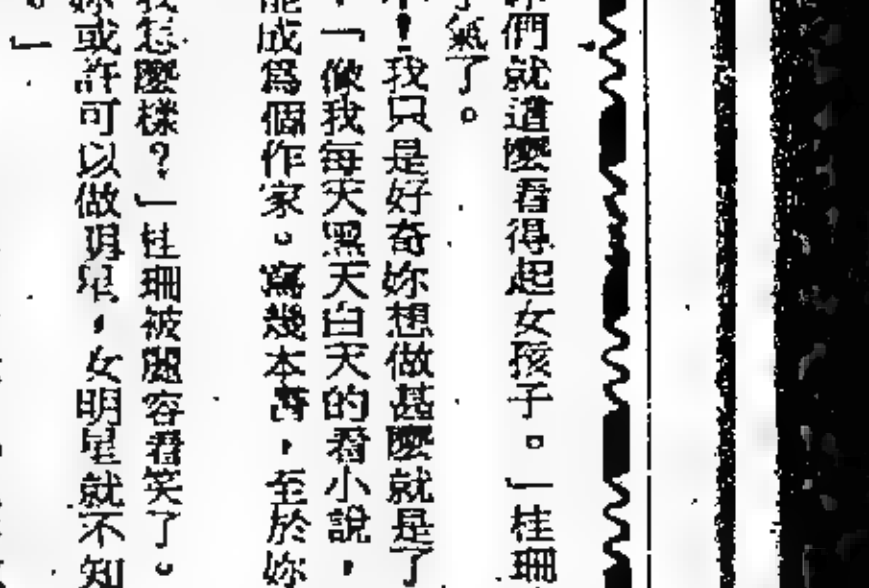 們就這麼看得起女孩子。」桂珊
氣了。
！我只是好奇妳想做甚麼就是了
「像我每天黑天白天的看小說，
成為個作家。寫幾本書，至於妳
怎麼樣？」桂珊被麗容看笑了。
妳或許可以做明星，女明星就不知
。」